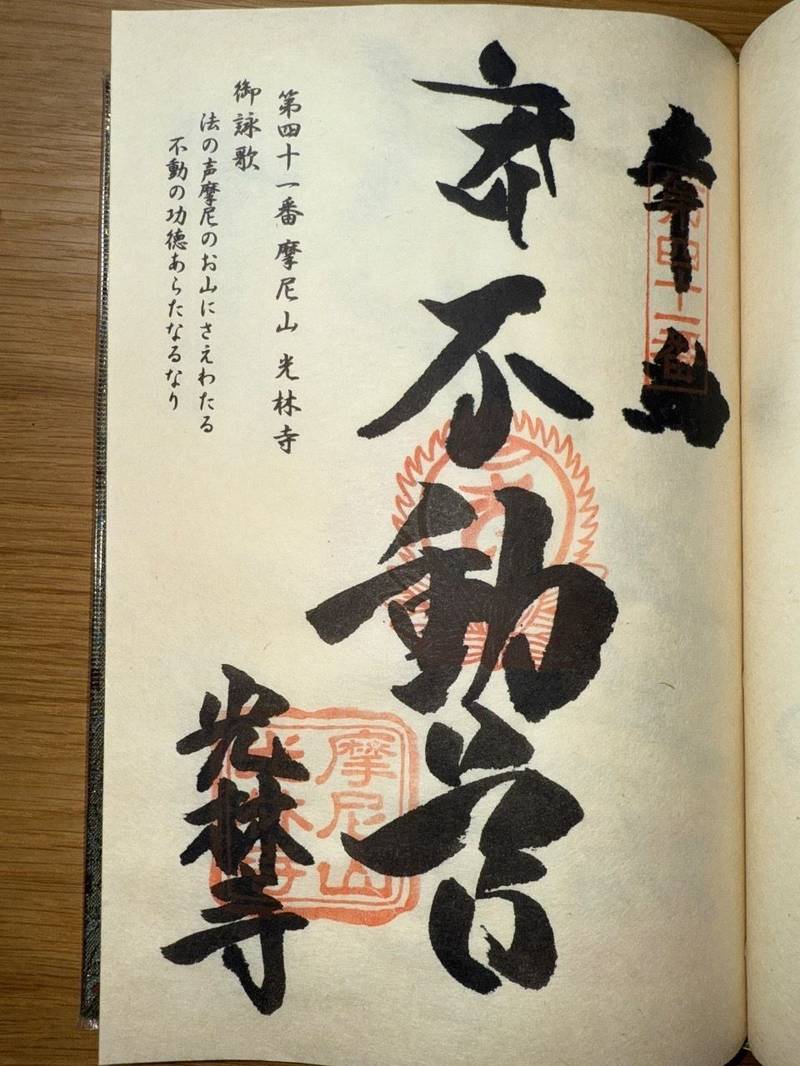 奉
第四十一番
不動
第四十一番 摩尼山 光林寺
御詠歌
法の声摩尼のお山にさえわたる
不動の功徳あらたなるなり
摩尼山
光林寺
光林寺